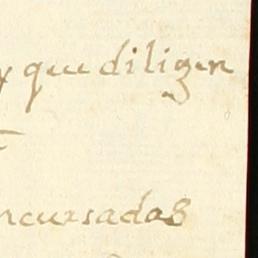 y que diligen
ncursadas